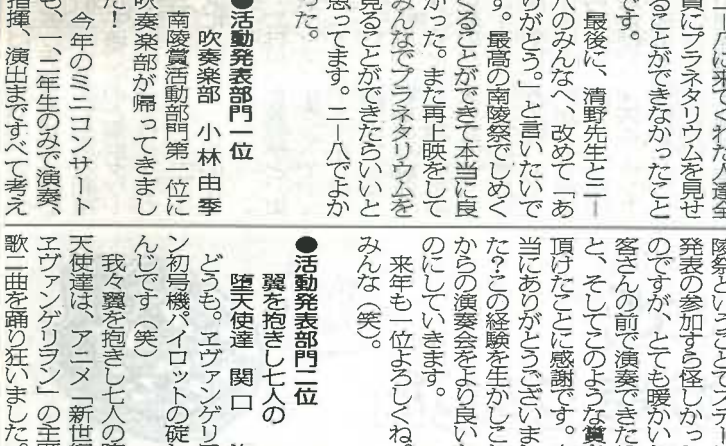 八に来てくれた人達全
員にプラネタリウムを見せ
ることができなかったこと
です。
最後に、清野先生と二―
八のみんなへ、改めて「あ
りがとう。」と言いたいで
す。最高の南陵祭でしめく
くることができて本当に良
かった。また再上映をして
みんなでプラネタリウムを
見ることができたらいいと
思ってます。二―八でよか
った。
●活動発表部門一位
吹奏楽部 小林由季
南陵賞活動部門第一位に
吹奏楽部が帰ってきまし
た！
今年のミニコンサート
も、一、二年生のみで演奏、
指揮、演出まですべて考え
陵祭ということでステー
発表の参加すら怪しかっ
のですが、とても暖かい
客さんの前で演奏できた
と、そしてこのような賞
頂けたことに感謝です。
当にありがとうございま
た？この経験を生かしこ
からの演奏会をより良い
のにしていきます。
来年も一位よろしくね。
みんな（笑。
●活動発表部門二位
翼を抱きし七人の
堕天使達 関口
どうも。ヱヴァンゲリ
ン初号機パイロットの碇
んじです（笑）
我々翼を抱きし七人の
天使達は、アニメ「新世
ヱヴァンゲリヲン」の主
歌二曲を踊り狂いました。